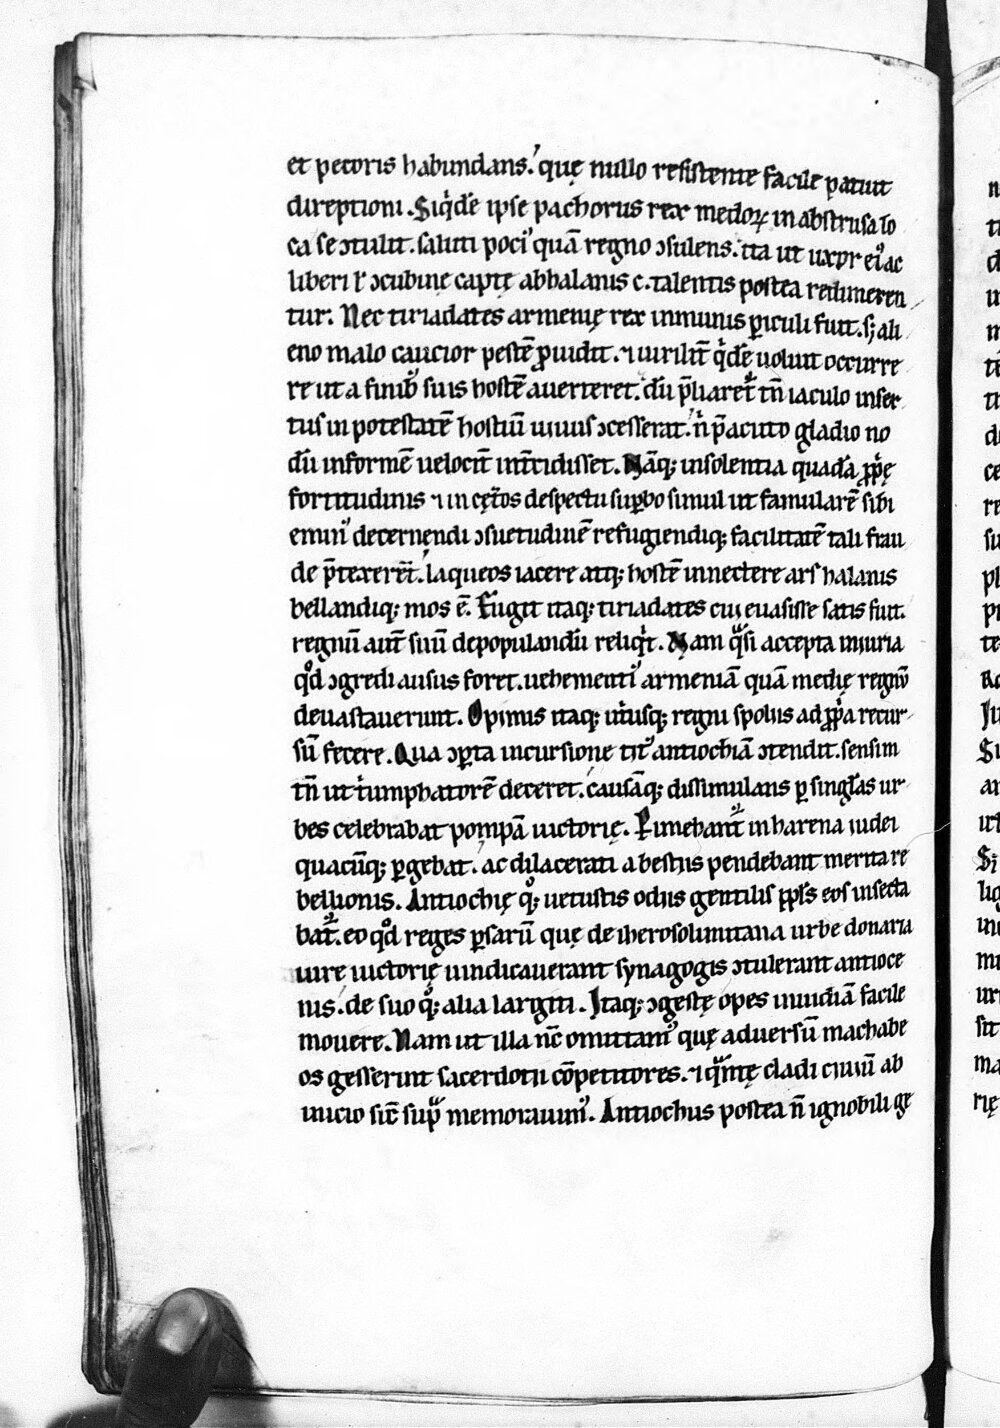 et pecoris habundans. quę nullo resistente facile patuit
direptioni. Siqͥdē ipse pachorus rex medoꝝ in abstrusa lo
ca se ꝯtulit. saluti poci᷒ quā regno ꝯsulens. ita ut uxor ei᷒ ac
liberi ł ꝯcubinę captę abhalanis c. talentis postea redimeren
tur. Nec tiriadates armenię rex inmunis ꝑiculi fuit. sꝫ ali
eno malo caucior pestē ꝓuidit. ⁊ uirilit̄ qͥdē uoluit occurre
re ut a finib᷒ suis hostē auerteret. dū p̄liaret᷒ tn̄ iaculo inser
tus in potestatē hostiū uiuus ꝯcesserat. nͥ p̄acuto gladio no
dū informē uelocit̄ int̄cidisset. Nāqꝫ insolentia quadā ꝓpͥę
fortitudinis ⁊ in cęt̄os despectu suꝑbo simul ut famularē sibi
emin᷒ decernendi ꝯsuetudinē refugiendiqꝫ facilitatē tali frau
de p̄texerēt. laqueos iacere atqꝫ hostē innectere ars halanis
bellandiqꝫ mos ē. Fugit itaqꝫ tiriadates cui euasisse satis fuit.
regnū aut̄ suū depopulandū reliqͥt. Nam qͣsi accepta iniuria
qͦd ꝯgredi ausus foret. uehementi᷒ armeniā quā medię regnū
deuastauerunt. Opimis itaqꝫ ut̄usqꝫ regni spoliis ad ꝓpͥa recur
sū fecere. Qua ꝯꝑta incursione tit᷒ antiochiā ꝯtendit. sensim
tn̄ ut tͥumphatorē deceret. causāqꝫ dissimulans ꝑ singłas ur
bes celebrabat pompā uictorię. Pimebant᷒ in harena iudei
quacūqꝫ ꝑgebat. ac dilacerati a bestiis pendebant merita re
bellionis. Antiochię qͦqꝫ uetustis odiis gentilis ppłs eos insecta
bat᷒. eo qͦd reges ꝑsarū quę de iherosolimitana urbe donaria
iure uictorię uindicauerant synagogis ꝯtulerant antioce
nis. de suo qͦqꝫ alia largiti. Itaqꝫ ꝯgestę opes inuidiā facile
mouere. Nam ut illa nc̄ omittam᷒ quę aduersū machabe
os gesserunt sacerdotii cōpetitores. ⁊ qͣntę cladi ciuiū ab
inicio sic̄ supͣ memorauim᷒. Antiochus postea n̄ ignobili ge